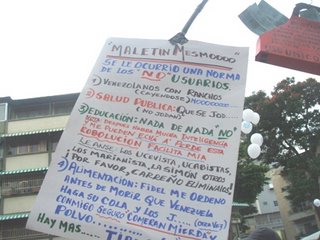 "MALETIN MESMOOOO"
SE LE OCURRIO UNA NORMA
DE LOS "NO" USUARIOS.
1) VENEZOLANOS CON RANCHOS
(CAYENDOSE) NOOOOOOOO
2) SALUD PUBLICA: QUE SE JOD....
(NO JODANS)
3) EDUCACIÓN: NADA DE NADA "NO"
ME PUEDEN ECHÁ A PERDE ESTA
ROBOLUCION FACILITA MIA
LEANSE LOS UCEVISTA, UCABISTAS,
LOS MARIANISTA, LA SIMON OTROS
¡POR FAVOR, CARREÑO ELIMINALOS!
3) ALIMENTACIÓN: FIDEL ME ORDENO
ANTES DE MORIR QUE VENEZUELA
HAGA SU COLA, Y LOS J.... (OTRA VEZ)
CONMIGO SEGURO COMERAN MIERDA Y
POLVO.
HAY MAS....